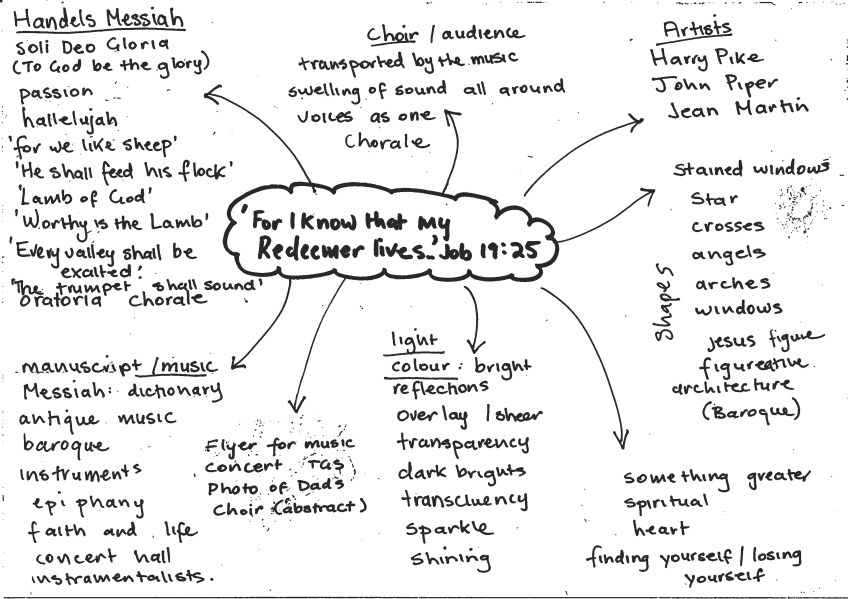 Handels Messiah
Soli Deo Gloria
(To God be the glory)
passion
hallelujah
'for we like sheep'
'He shall feed his flock'
'Lamb of God'
'Worthy is the Lamb'
'Every valley shall be
exalted!'
'The trumpet shall sound'
oratoria chorale
Choir / audience
transported by the music
swelling of sound all around
voices as one
Chorale
Artists
Harry Pike
John Piper
Jean Martin
'For I Know that my
Redeemer lives..' Job 19:25
Stained windows
Star
crosses
angels
arches
windows
shapes
Jesus figure
figureative
architecture
(Baroque)
manuscript / music
Messiah: dictionary
antique music
baroque
instruments
epiphany
faith and life
concert hall
instramentalists.
Flyer for music
concert TGS
Photo of Dads
Choir (abstract)
light
colour: bright
reflections
overlay / sheer
transparency
dark brights
transcluency
sparkle
shining
something greater
spiritual
heart
finding yourself / losing
yourself